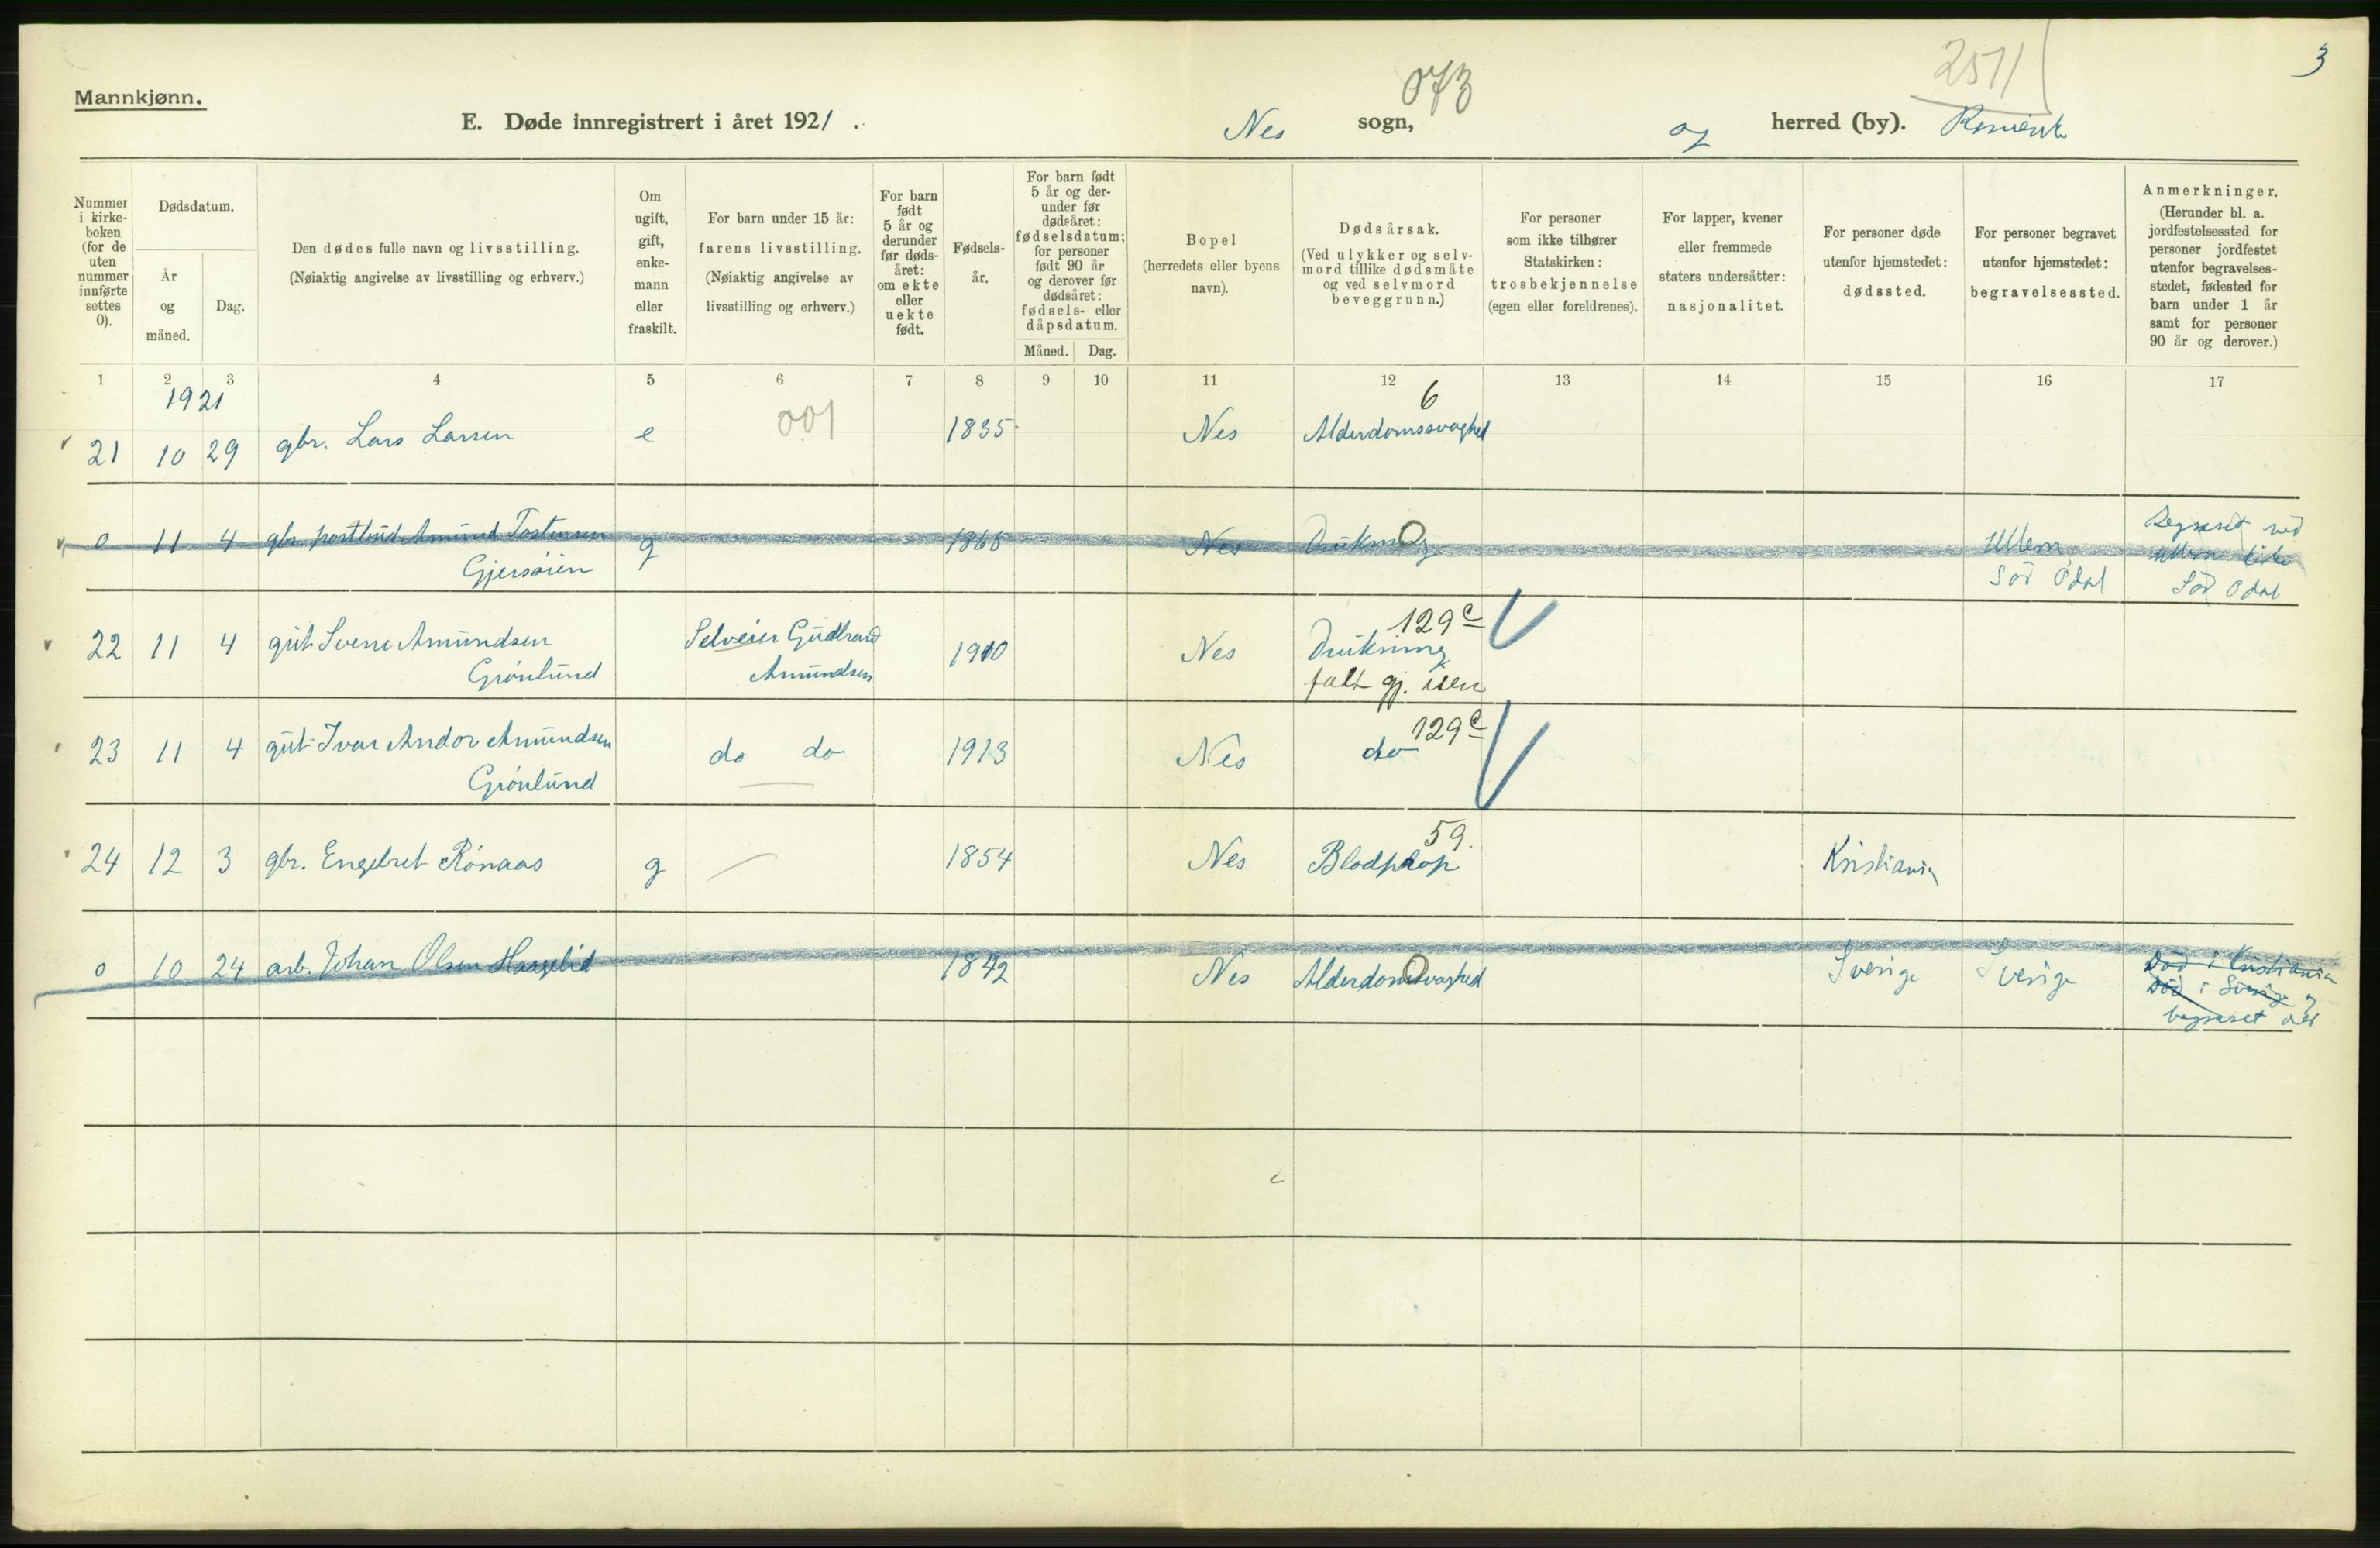 3
2511
073
Mannkjønn.
E. Døde innregistrert i året 1921.
Nes sogn,
og herred (by).
Nummer i kirke-boken (for de uten nummer innførte settes 0).
Dødsdatum.
År og måned.
Dag.
Den dødes fulle navn og livsstilling.
(Nøiaktig angivelse av livsstilling og erhverv.)
Om ugift, gift, enke-mann eller fraskilt.
For barn under 15 år:
farens livsstilling.
(Nøiaktig angivelse av livsstilling og erhverv.)
For barn født 5 år og derunder før døds-året: om ekte eller uekte født.
Fødsels-år.
For barn født 5 år og der-under før dødsåret: fødselsdatum; for personer født 90 år og derover før dødsåret: fødsels- eller dåpsdatum.
Måned. Dag.
Bopel
(herredets eller byens navn).
Dødsårsak.
(Ved ulykker og selv-mord tillike dødsmåte og ved selvmord beveggrunn.)
For personer som ikke tilhører Statskirken:
trosbekjennelse
(egen eller foreldrenes).
For lapper, kvener eller fremmede staters undersåtter:
nasjonalitet.
For personer døde utenfor hjemstedet:
dødssted.
For personer begravet utenfor hjemstedet:
begravelsessted.
Anmerkninger.
(Herunder bl. a. jordfestelsessted for personer jordfestet utenfor begravelses-stedet, fødested for barn under 1 år samt for personer 90 år og derover.)
1 2 3 4 5 6 7 8 9 10 11 12 13 14 15 16 17
1921
6
21 10 29 gbr. Lars Larsen e 001 1835 Nes Alderdomssvaghed
0 11 4 gbr. postbud Amund Tostensen g 1865 Nes Drukning Ullern Begravet ved
Gjersøien Sør Odal Ullern kirke
Sør Odal
129 c
22 11 4 gut Sverre Amundsen Selveier Gudbrand 1910 Nes Drukning
Grønlund Amundsen falt gj. isen
129 c
23 11 4 gut Ivar Andor Amundsen do do 1913 Nes do
Grønlund
59.
24 12 3 gbr. Engebret Rønaas g 1854 Nes Blodprop Kristiania
0 10 24 arb. Johan Olsen Haagelid 1842 Nes Alderdomssvaghed Sverige Sverige Død i Kristiania
Død i Sverige og
begravet der